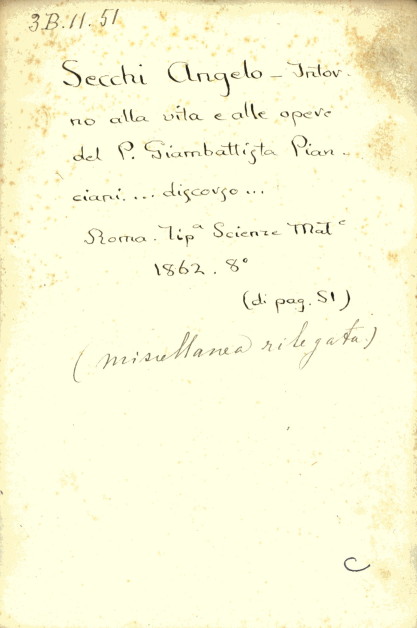 3.B.11.51
Secchi Angelo - Intor-
no alla vita e alle opere
del P. Giambattista Pian-
ciani.... discorso...
Roma. Tipª Scienze Matᵉ
1862. 8°
(di pag. 51)
(miscellanea rilegata)
C